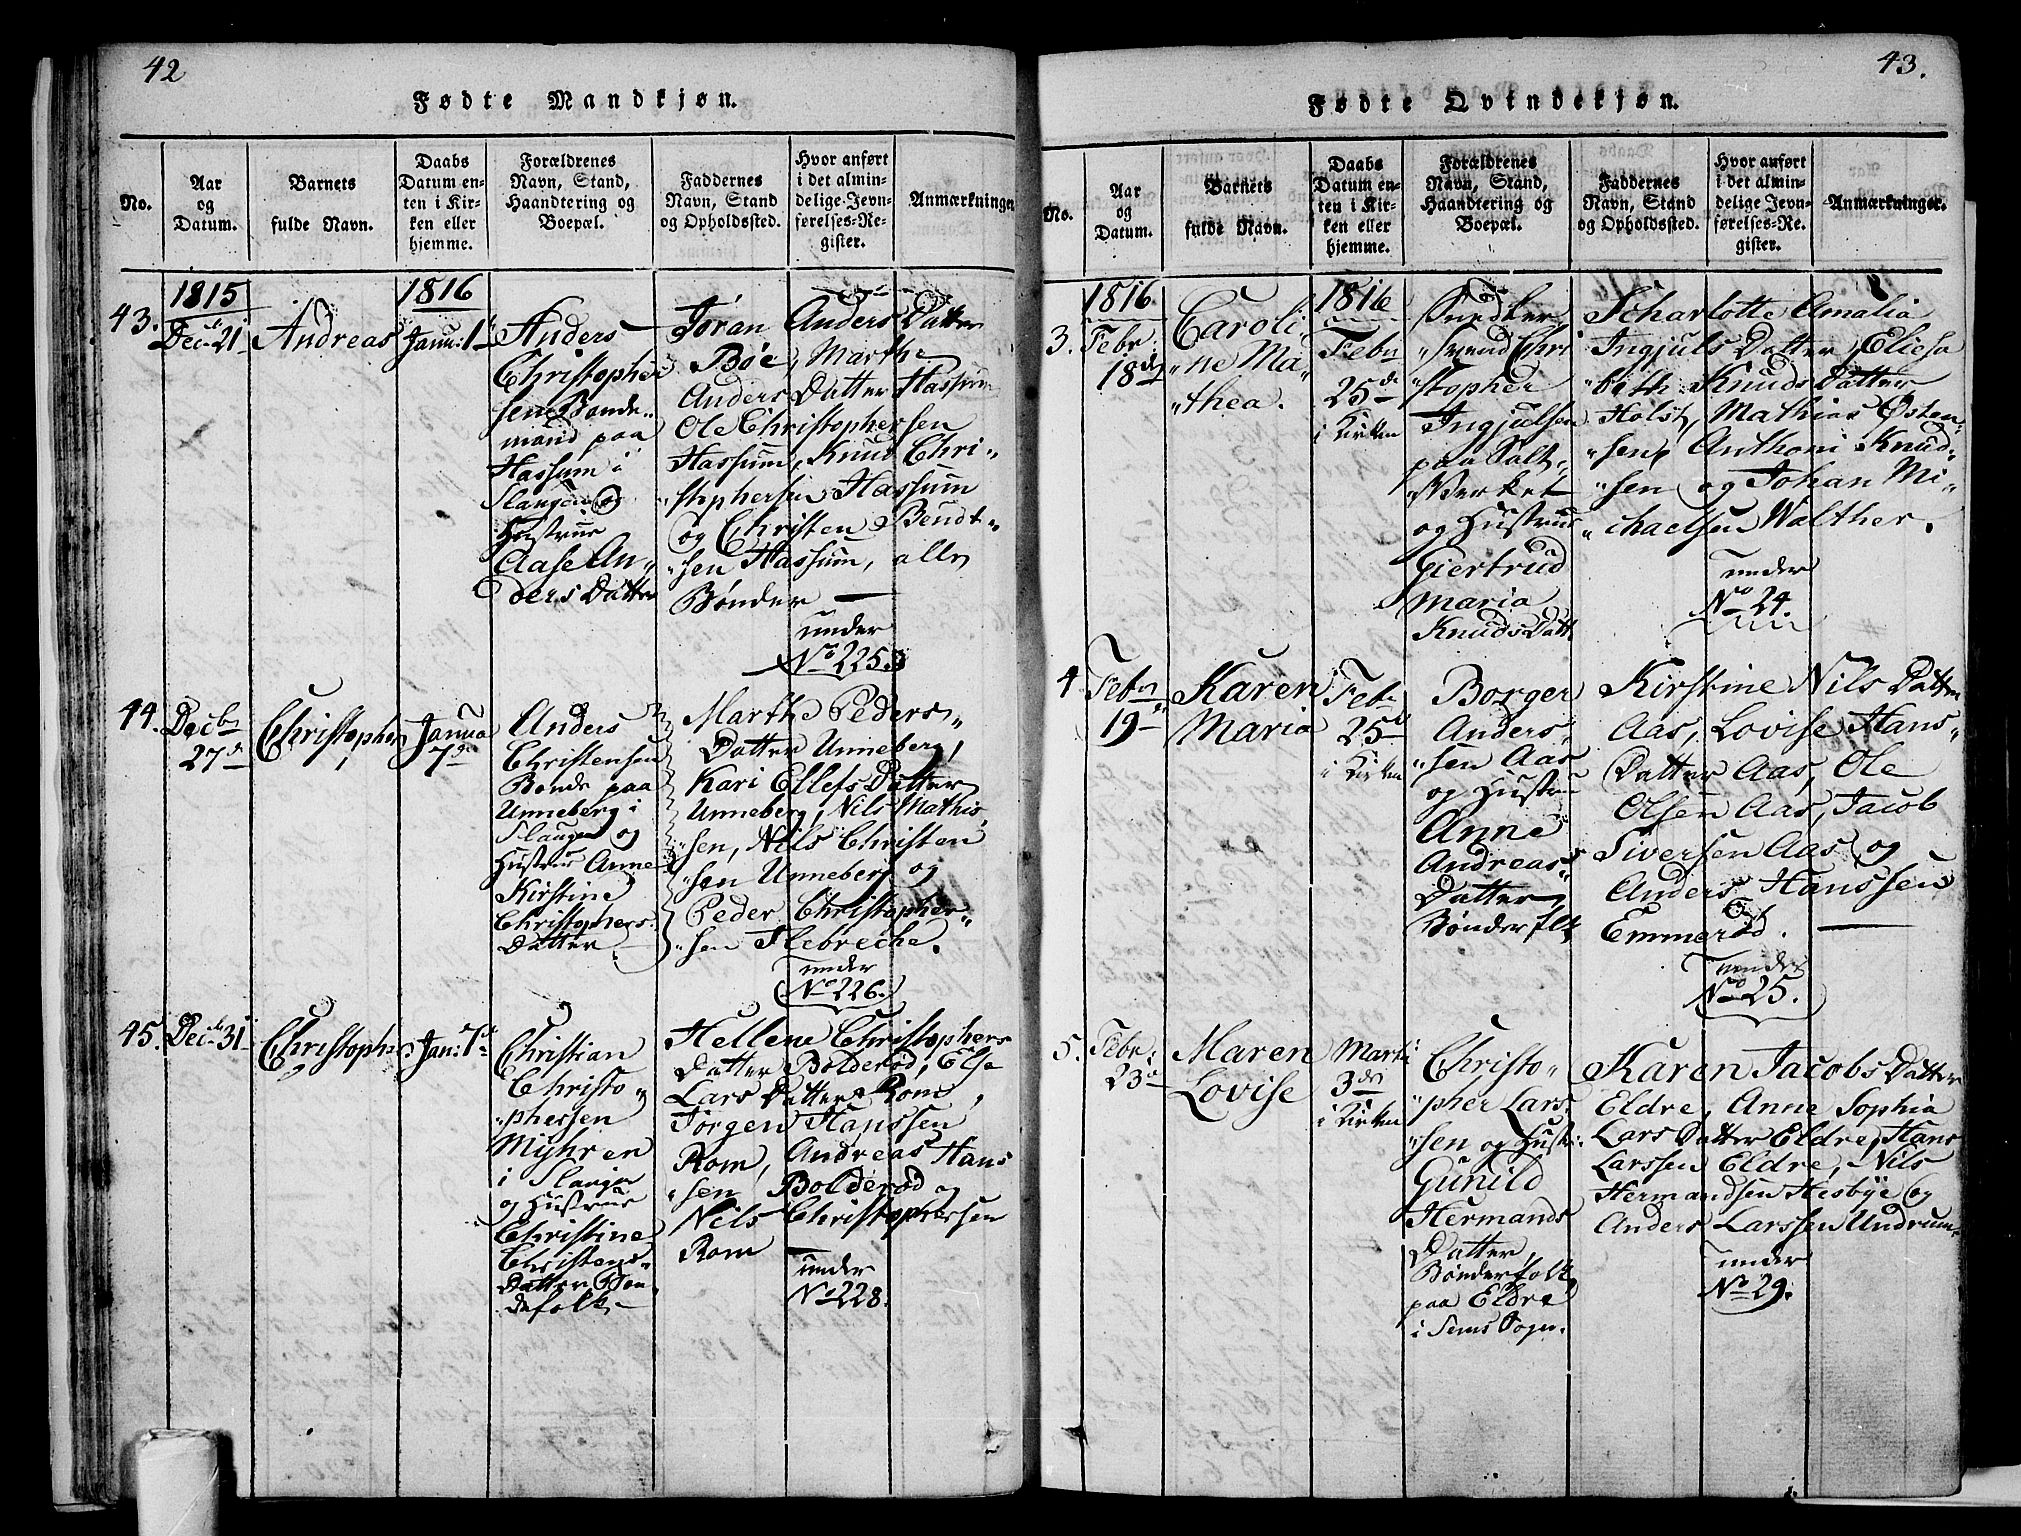 42
Fødte Mandkjøn.
No.
Aar
og
Datum.
Barnets
fulde Navn.
Daabs
Datum en-
ten i Kir-
ken eller
hjemme.
Forældrenes
Navn, Stand,
Haandtering og
Boepæl.
Faddernes
Navn, Stand
og Opholdssted.
Hvor anført
i det almin-
delige Jevn-
førelses-Re-
gister.
Anmærkninger
43.
1815
Dec. 21
Andreas
1816
Janu: 1
Anders
Christopher
sen Bonde„
mand paa
Hassum i
Slaugen og
Hustrue
Aase An„
ders Datter
Jøran Anders Datter
Bøe, Marthe
Anders Datter Hassum
Ole Christophersen
Hassum, Knud Chri„
„stophersen Hassum
og Christen Bendt„
„sen Hassum, alle
Bønder
under
No 225
44.
Decbr
27de
Christopher
Janua
7de
Anders
Christensen
Bonde paa
Unneberg i
Slaugen og
Hustrue Anne
Kirstine
Christophers
Datter
Marthe Peders„
Datter Unneberg,
Kari Ellefs Datter
Unneberg, Nils Mathis„
„sen, Nils Christen
„sen Unneberg og
Peder Christopher„
„sen Flebreche.
under
No 226.
45.
Dec. 31
Christopher
Jan: 7de
Christian
Christo„
„phersen
Myhren
i Slaugen
og Hustrue
Christine
Christens„
Datter Bon
defolk
Hellene Christophers
Datter Bolderød, Else
Lars Datter Rom,
Jørgen Hanssen
Rom, Andreas Hans
„sen Bolderød og
Nils Christophersen
Rom
under
No 228.
43.
Fødte Qvindekjøn.
No.
Aar
og
Datum.
Barnets
fulde Navn.
Daabs
Datum en-
ten i Kir-
ken eller
hjemme.
Forældrenes
Navn, Stand,
Haandtering og
Boepæl.
Faddernes
Navn, Stand
og Opholdssted.
Hvor anført
i det almin-
delige Jevn-
førelses-Re-
gister.
Anmærkninger.
3.
1816.
Febr.
18de
Caroli„
„ne Ma„
„thea.
1816
Febr
25de
i Kirken
Snedker
Svend Chri
„stopher
Ingjulsen
paa Salt„
„Verket
og Hustrue
Giertrud
Maria
Knuds Datt
Scharlotte Amalia
Ingjuls Datter, Eliesa
„beth Knuds Datter
Holst, Mathias Østen„
„sen, Anthoni Knud„
„sen og Johan Mi„
„chaelsen Walther.
under
No 24.
4
Febr
19
Karen
Maria
Feb.
25de
i Kirken
Borger
Anders„
„sen Aas
og Hustru
Anne
Andreas„
Datter
Bønderflk
Kirstine Nils Datter
Aas, Lovise Hans„
Datter Aas, Ole
Olsen Aas, Jacob
Siversen Aas og
Anders Hanssen
Emmerød.
under
No 25.
5.
Febr.
23de
Maren
Lovise
Marti
3de
i Kirken
Christo„
„pher Lars„
„sen og Hust:
Gunild
Hermands
Datter,
Bønderfolk
paa Eldre
i Sems Sogn.
Karen Jacobs Datter
Eldre, Anne Sophia
Lars Datter Eldre, Hans
Larssen Eldre, Nils
Hermandsen Hesbye og
Anders Larssen Undrum
under
No 29.